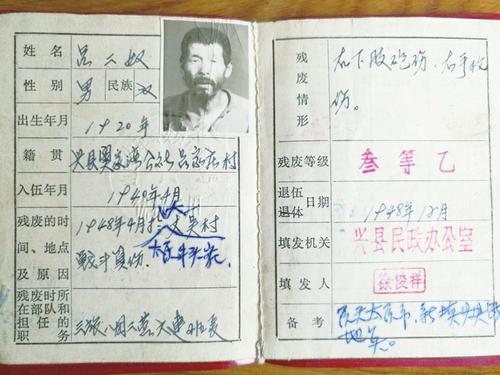 姓名 吕二奴
性别 男 民族 汉
出生年月 1920年
籍贯 兴县奥家湾公社吕家庄村
入伍年月 1940年4月
残废的时间、地点及原因 1948年4月 村
战斗负伤。
残废时所在部队和担任的职务 三旅八团二营六连班长
残废情形 右下肢炮伤、右手枪
伤。
残废等级 叁等乙
退伍
退休 日期 1948年12月
填发机关 兴县民政办公室
填发人 徐俊祥
备考